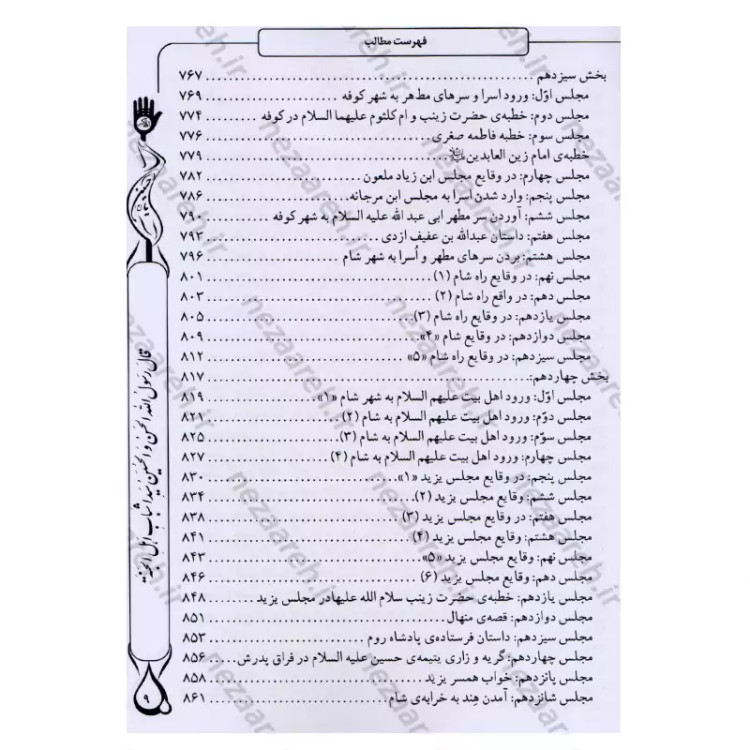 فهرست مطالب
بخش سیزدهم ........ ۷۶۷
مجلس اوّل: ورود اسرا و سرهای مطهر به شهر کوفه ........ ۷۶۹
مجلس دوم: خطبه‌ی حضرت زینب و ام کلثوم علیهما السلام در کوفه ........ ۷۷۴
مجلس سوم: خطبه فاطمه صغری ........ ۷۷۶
خطبه‌ی امام زین العابدین ........ ۷۷۹
مجلس چهارم: در وقایع مجلس ابن زیاد ملعون ........ ۷۸۲
مجلس پنجم: وارد شدن اسرا به مجلس ابن مرجانه ........ ۷۸۶
مجلس ششم: آوردن سر مطهر ابی عبد الله علیه السلام به شهر کوفه ........ ۷۹۰
مجلس هفتم: داستان عبدالله بن عفیف ازدی ........ ۷۹۳
مجلس هشتم: بردن سرهای مطهر و اُسرا به شهر شام ........ ۷۹۶
مجلس نهم: در وقایع راه شام (۱) ........ ۸۰۱
مجلس دهم: در واقع راه شام (۲) ........ ۸۰۳
مجلس یازدهم: در وقایع راه شام (۳) ........ ۸۰۵
مجلس دوازدهم: در وقایع شام «۴» ........ ۸۰۹
مجلس سیزدهم: در وقایع راه شام «۵» ........ ۸۱۲
بخش چهاردهم: ........ ۸۱۷
مجلس اوّل: ورود اهل بیت علیهم السلام به شهر شام «۱» ........ ۸۱۹
مجلس دوّم: ورود اهل بیت علیهم السلام به شام (۲) ........ ۸۲۱
مجلس سوّم: ورود اهل بیت علیهم السلام به شام (۳) ........ ۸۲۵
مجلس چهارم: ورود اهل بیت علیهم السلام به شام (۴) ........ ۸۲۷
مجلس پنجم: در وقایع مجلس یزید «۱» ........ ۸۳۰
مجلس ششم: وقایع مجلس یزید (۲) ........ ۸۳۴
مجلس هفتم: وقایع مجلس یزید (۳) ........ ۸۳۸
مجلس هشتم: وقایع مجلس یزید (۴) ........ ۸۴۱
مجلس نهم: وقایع مجلس یزید «۵» ........ ۸۴۳
مجلس دهم: وقایع مجلس یزید (۶) ........ ۸۴۶
مجلس یازدهم: خطبه‌ی حضرت زینب سلام الله علیهادر مجلس یزید ........ ۸۴۸
مجلس دوازدهم: قصه‌ی منهال ........ ۸۵۱
مجلس سیزدهم: داستان فرستاده‌ی پادشاه روم ........ ۸۵۳
مجلس چهاردهم: گریه و زاری یتیمه‌ی حسین علیه السلام در فراق پدرش ........ ۸۵۶
مجلس پانزدهم: خواب همسر یزید ........ ۸۵۸
مجلس شانزدهم: آمدن هِند به خرابه‌ی شام ........ ۸۶۱
قال رسول الله الحسن و الحسین سیدا شباب اهل الجنة
۹
nezaareh.ir